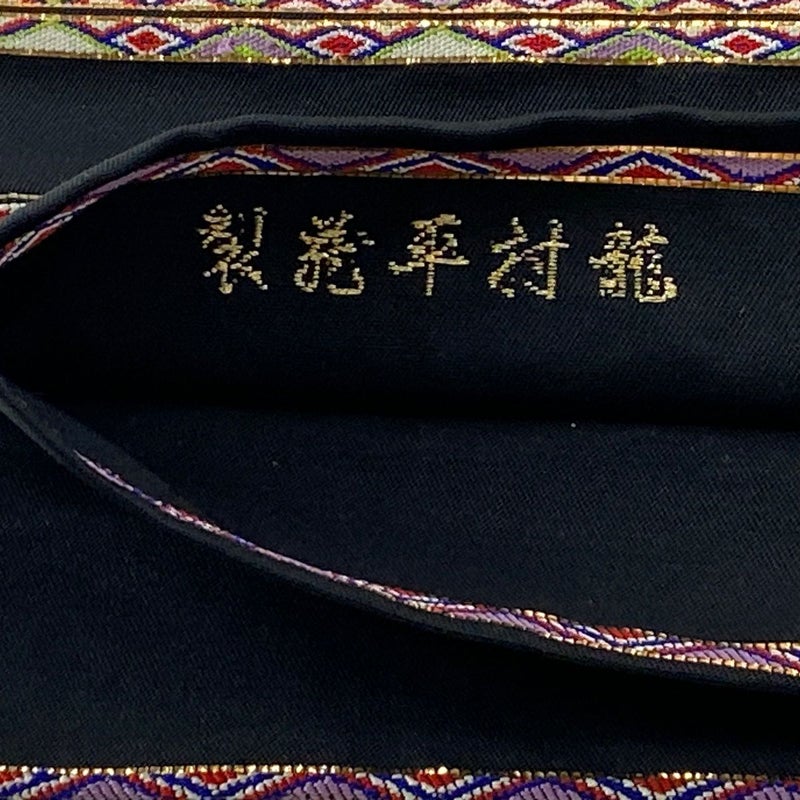 龍村平藏製